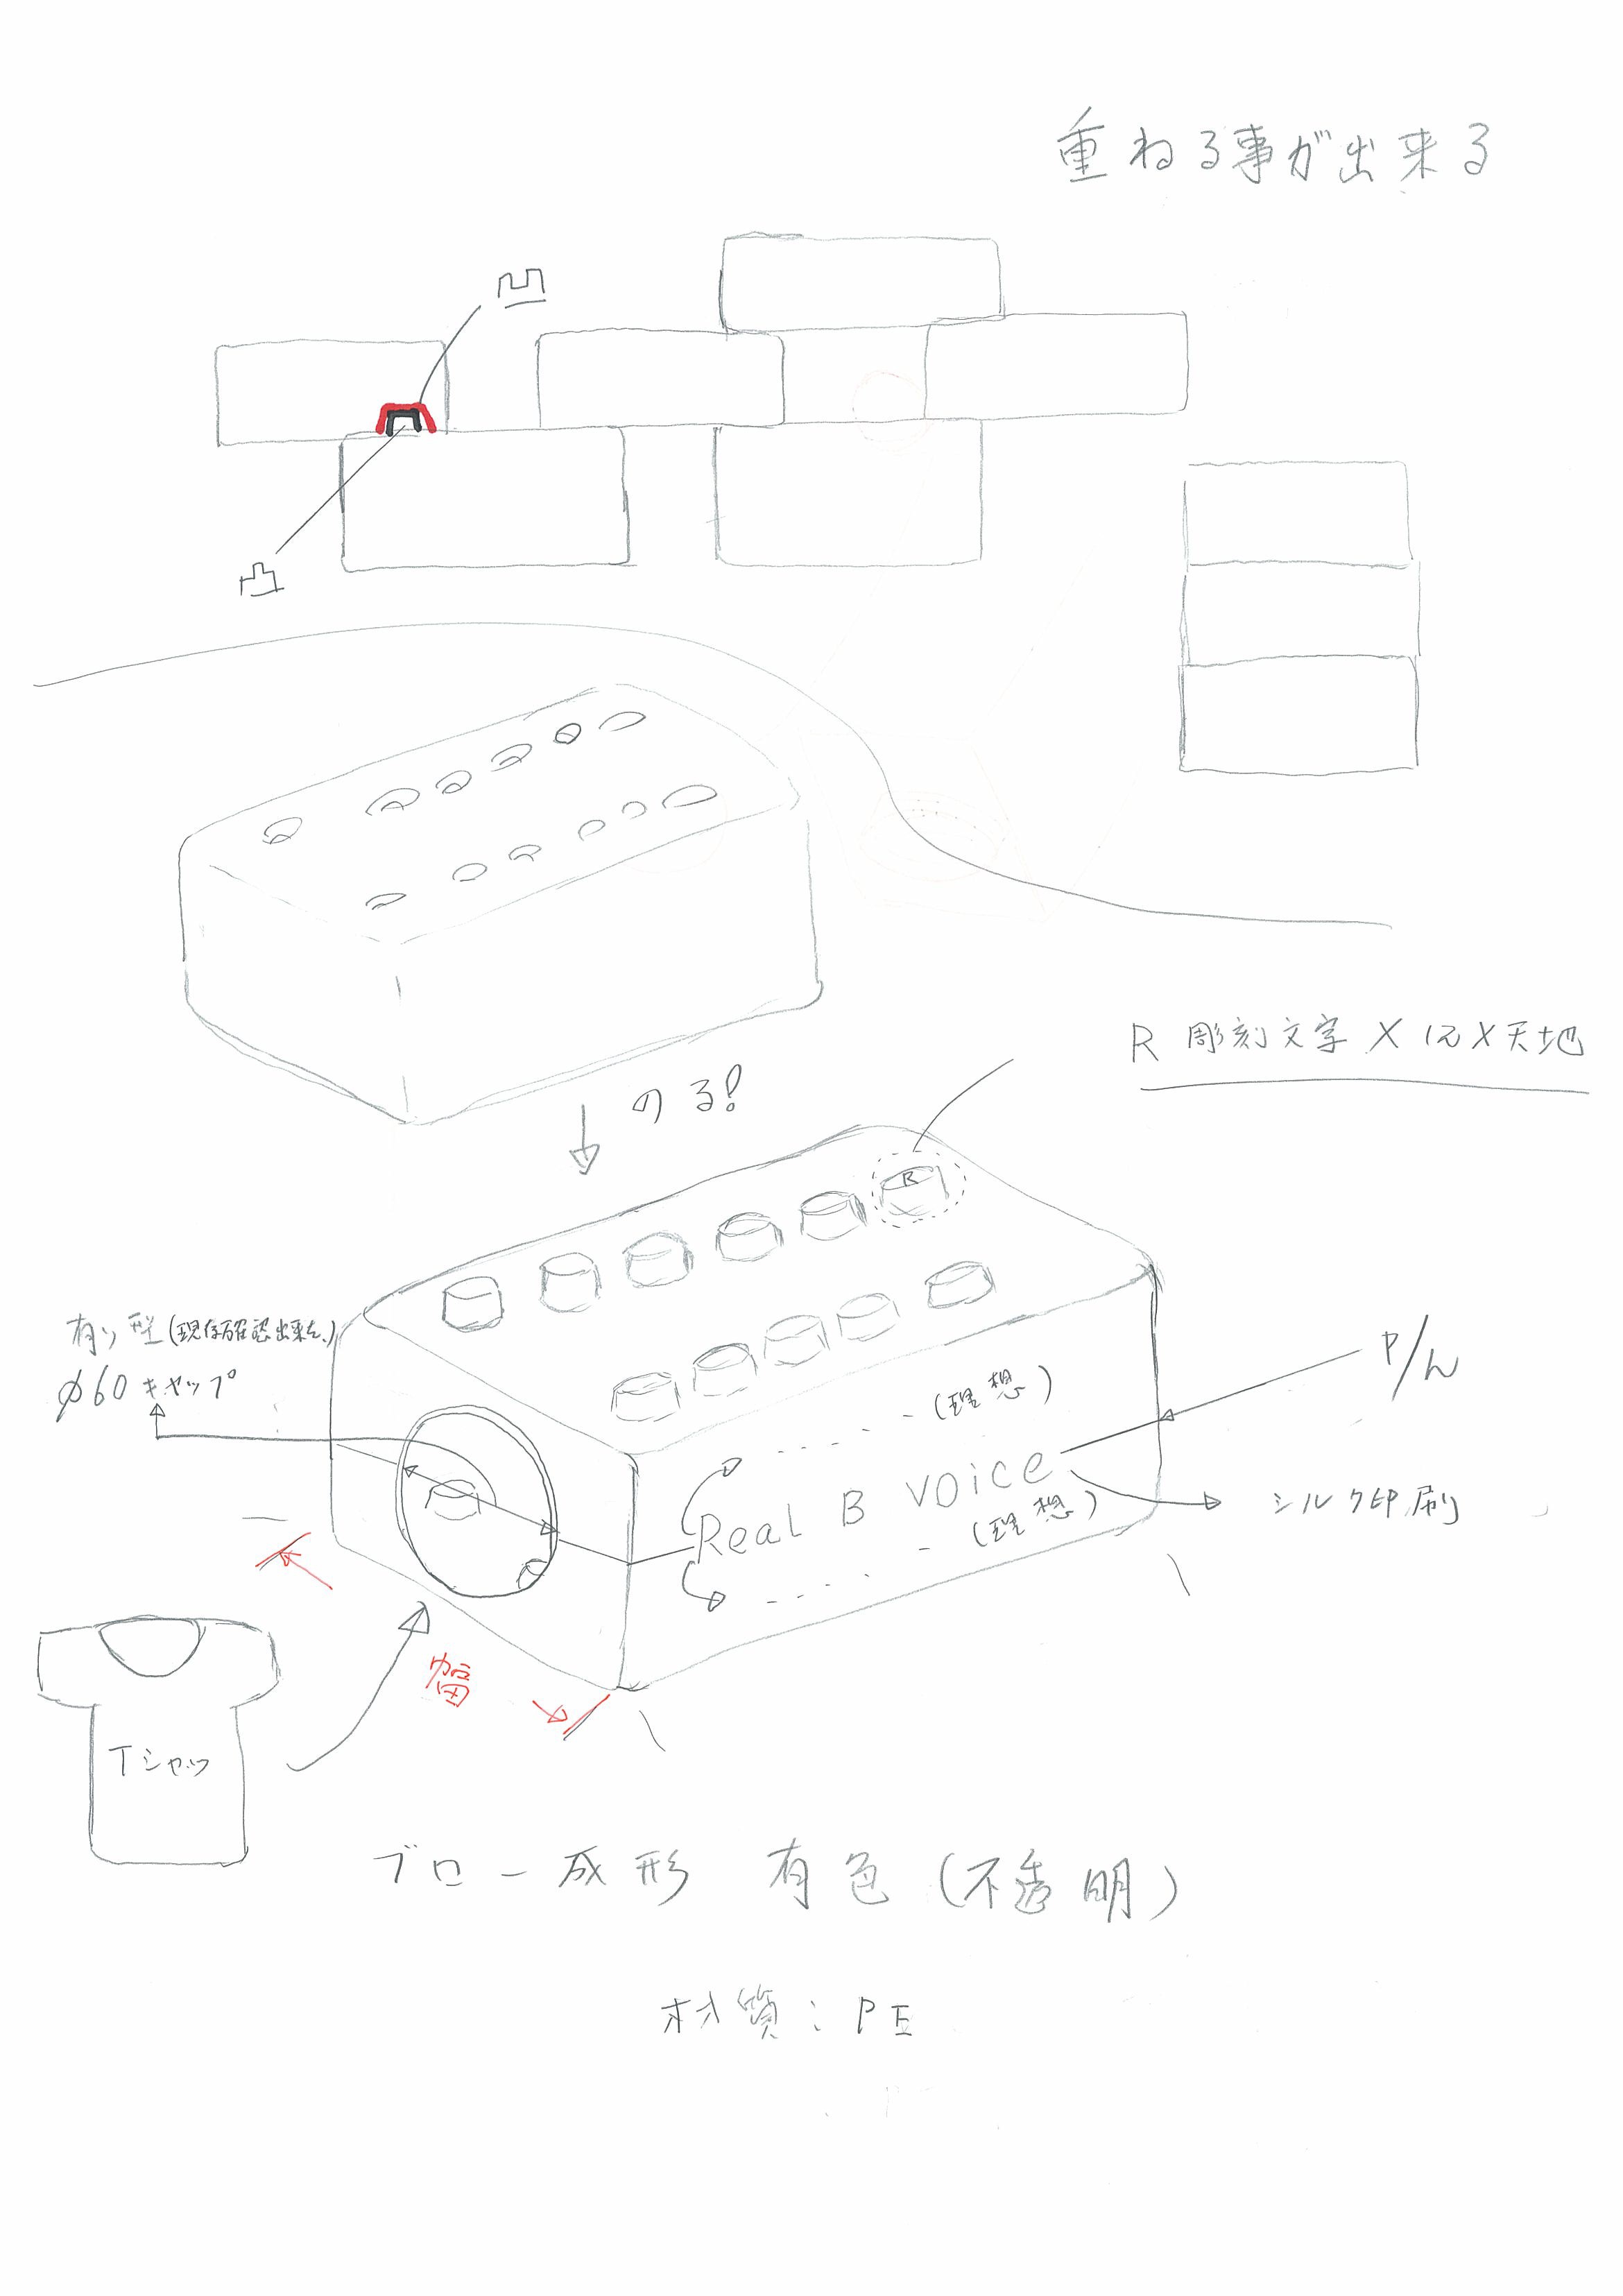 重ねる事が出来る
凹
凸
R 彫刻文字 X 12 X 天地
のる!
R
有り型(現存確認出来た)
φ60キャップ
(理想)
P/L
Real B voice
(理想)
シルク印刷
幅
Tシャツ
ブロー成形 有色(不透明)
材質:PE